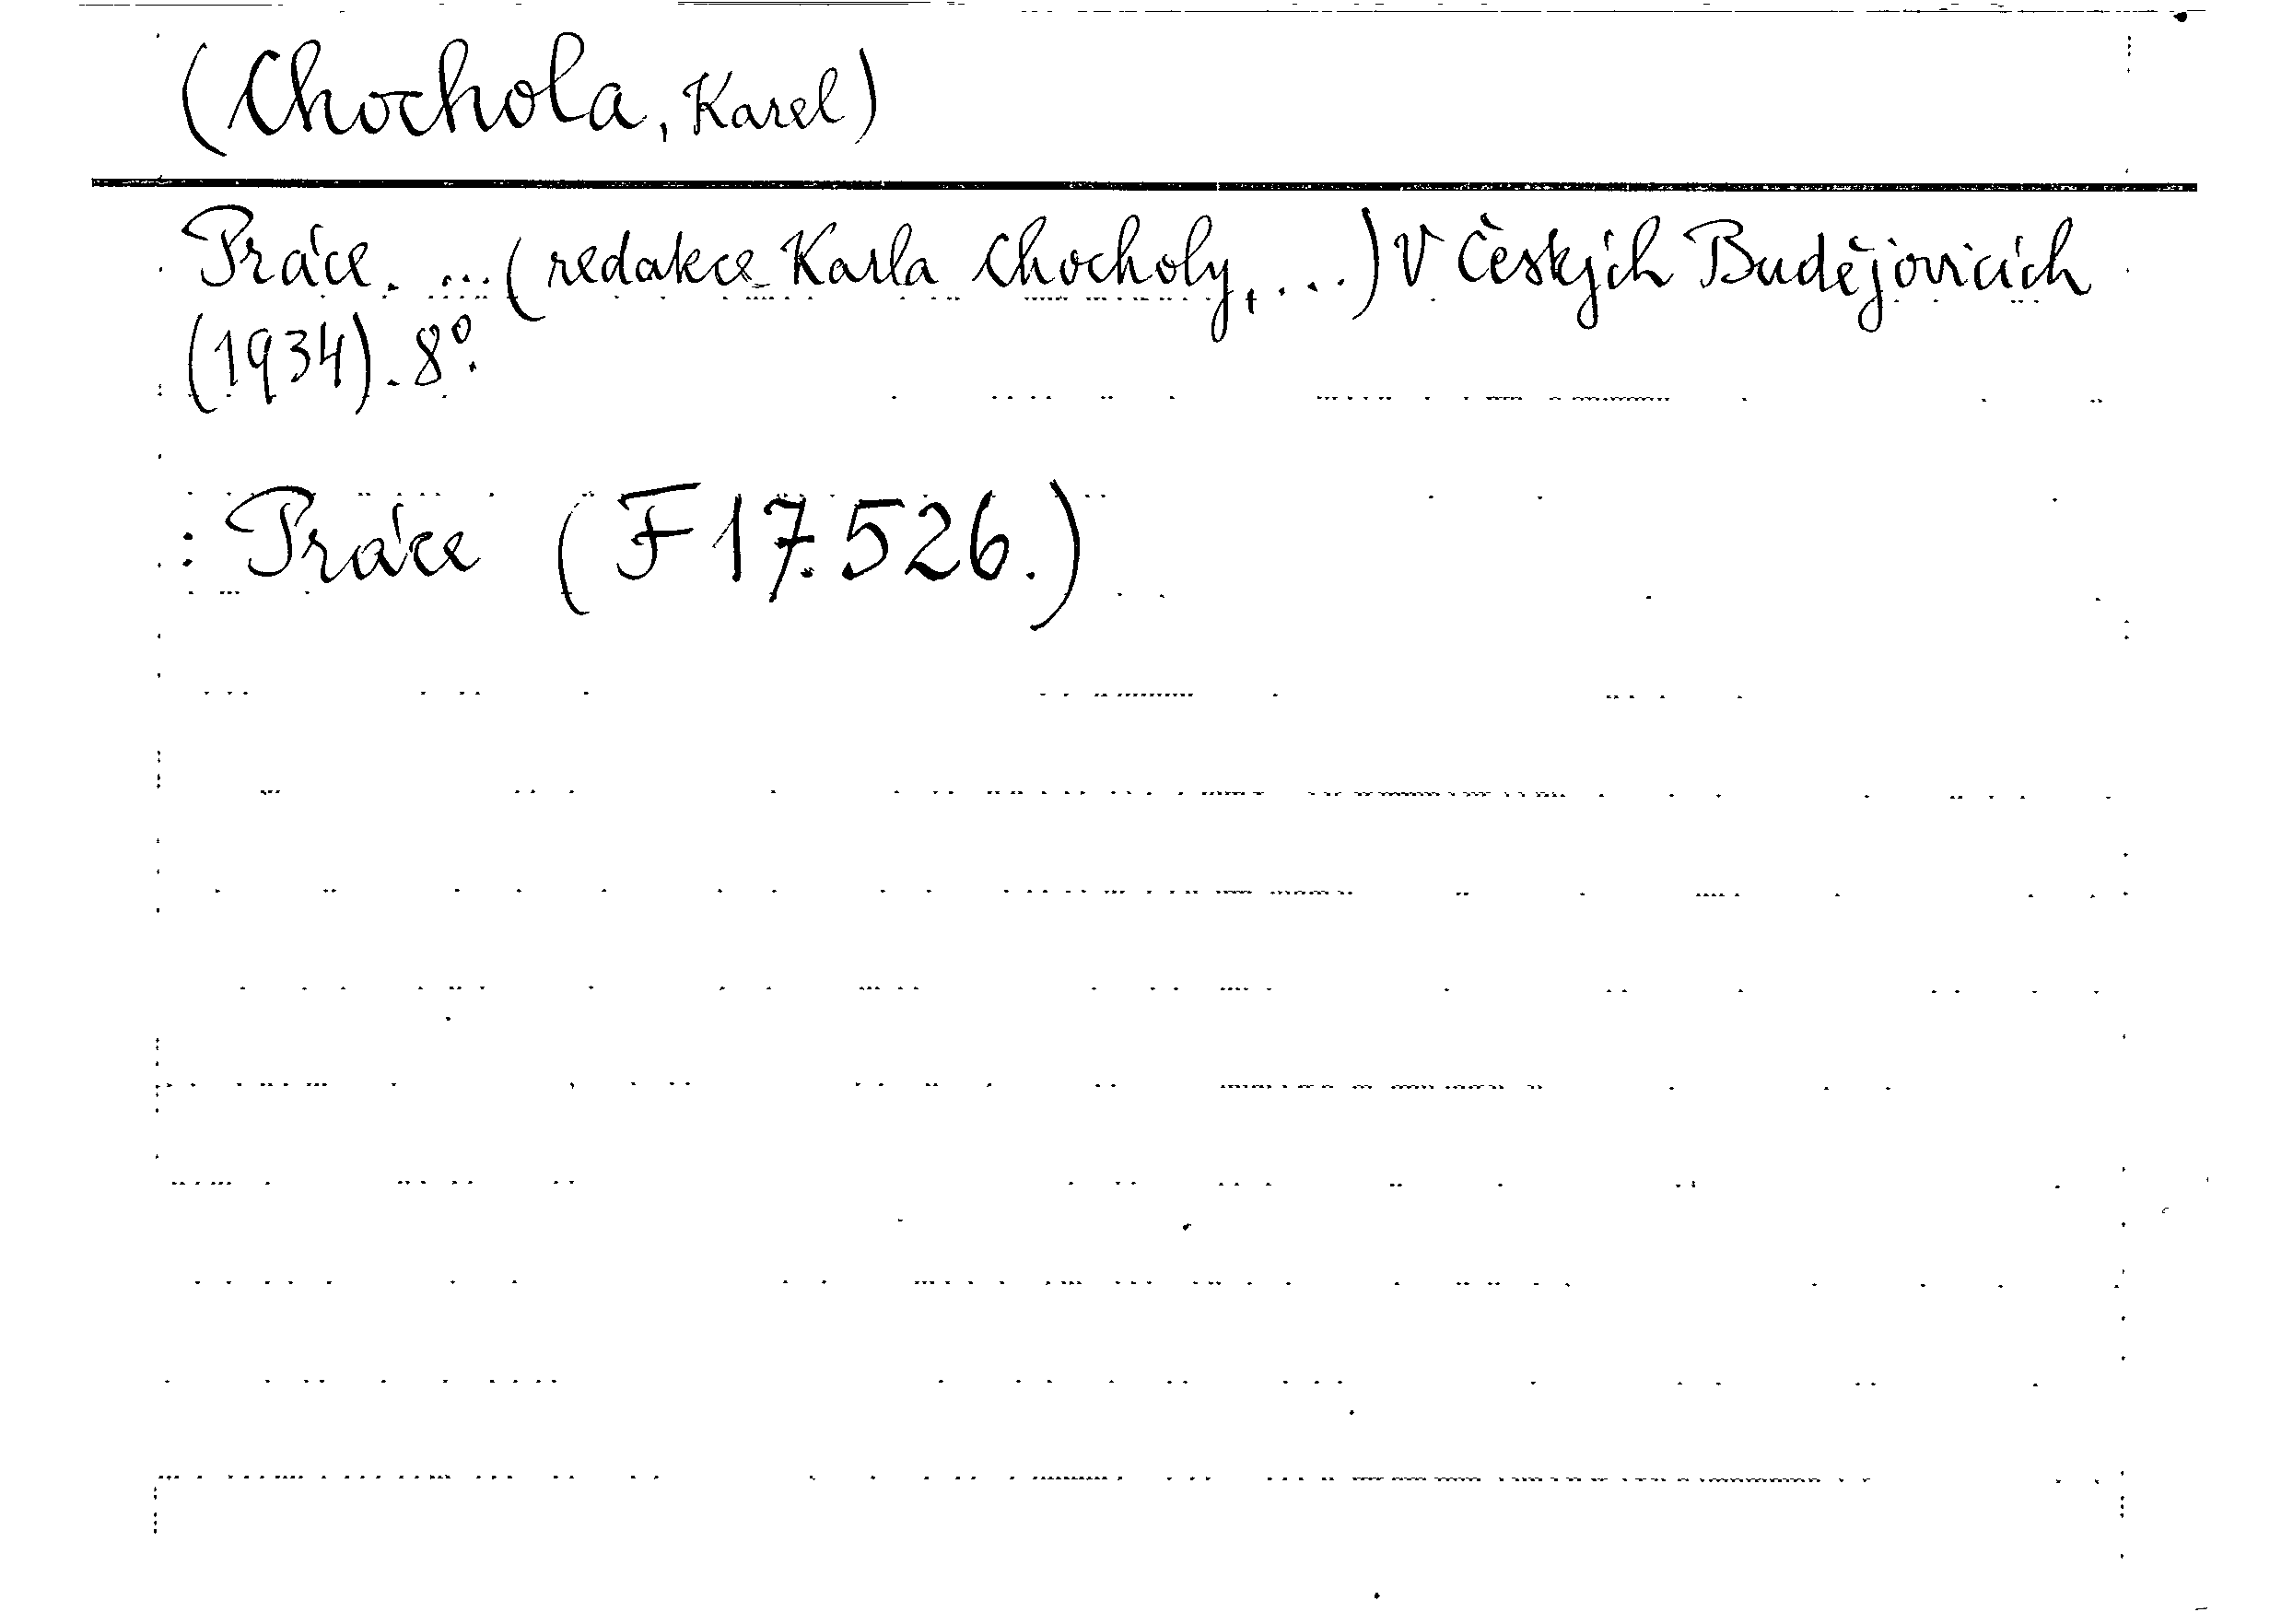 (Chochola, Karel)
Práce. ... (redakce Karla Chocholy, ...) V Českých Budějovicích
(1934). 8º.
: Práce (F 17.526.)